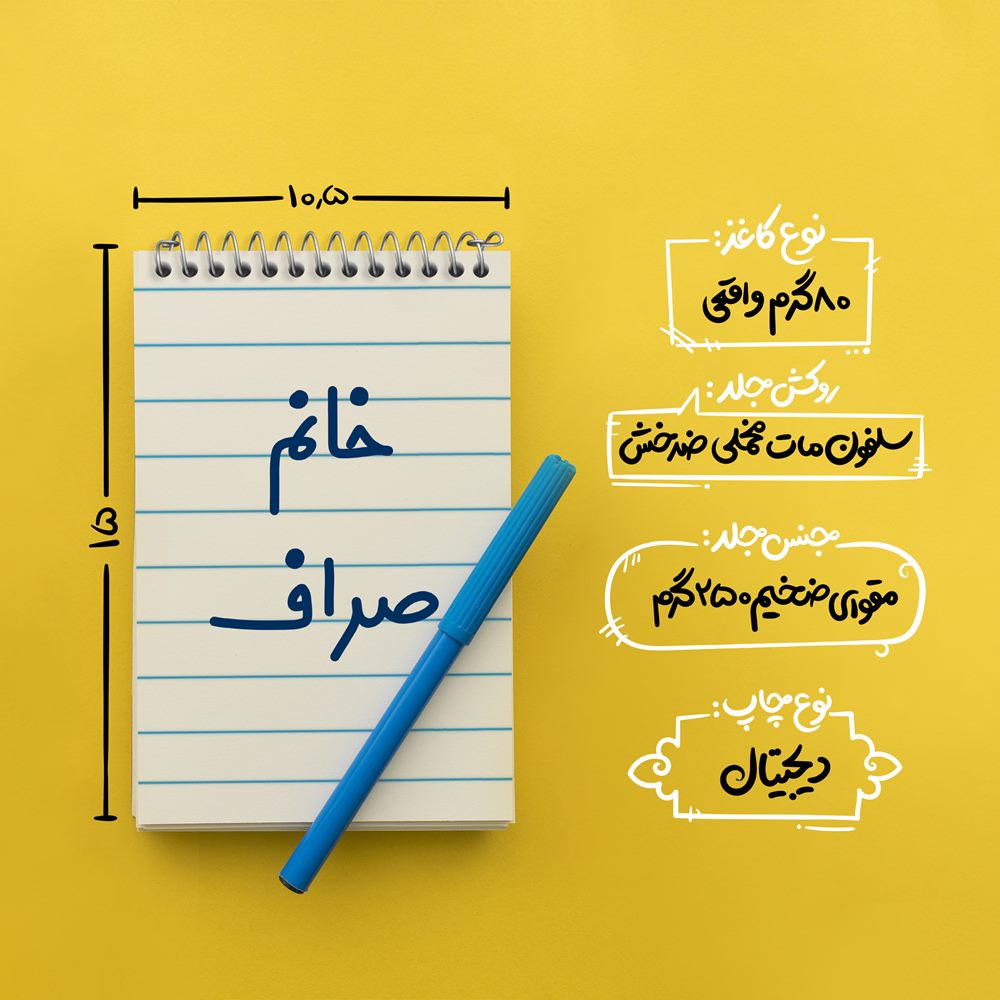 ۱۰٫۵
۱۵
خانم
صراف
نوع کاغذ:
۸۰گرم واقعی
روکش جلد:
سلفون مات مخملی ضدخش
جنس جلد:
مقوای ضخیم ۲۵۰گرم
نوع چاپ:
دیجیتال